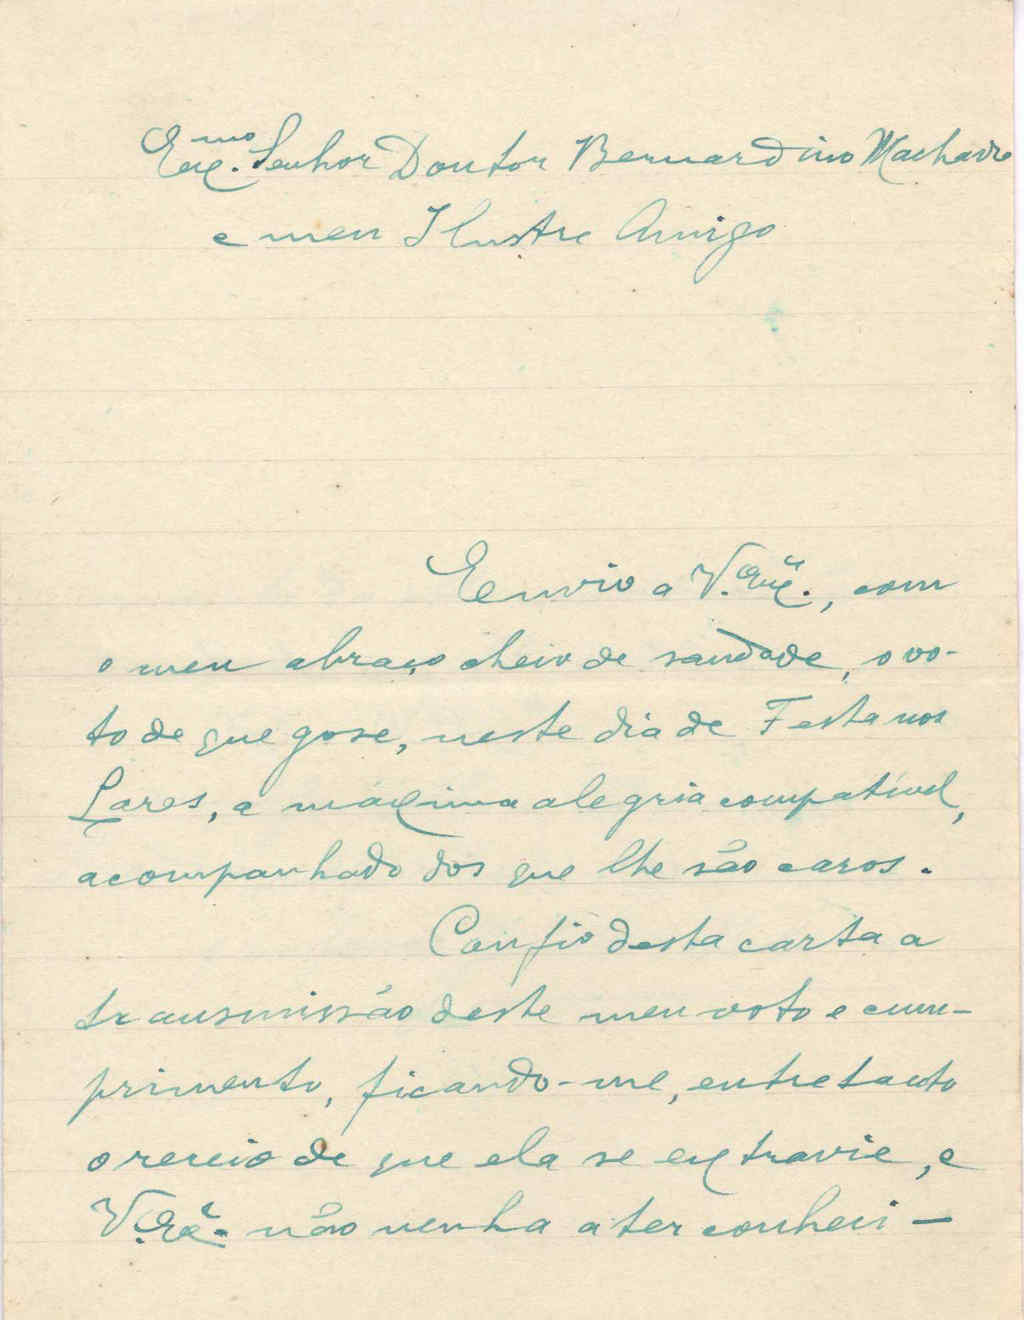 Ex.mo Senhor Doutor Bernardino Machado
e meu Ilustre Amigo
Envio a V. Exª., com
o meu abraço cheio de saudade, o vo-
to de que gose, neste dia de Festa nos
Lares, a máxima alegria compatível,
acompanhado dos que lhe são caros.
Confio desta carta a
transmissão deste meu voto e cum-
primento, ficando-me, entretanto
o receio de que ela se extravie, e
V. Exª. não venha a ter conheci-